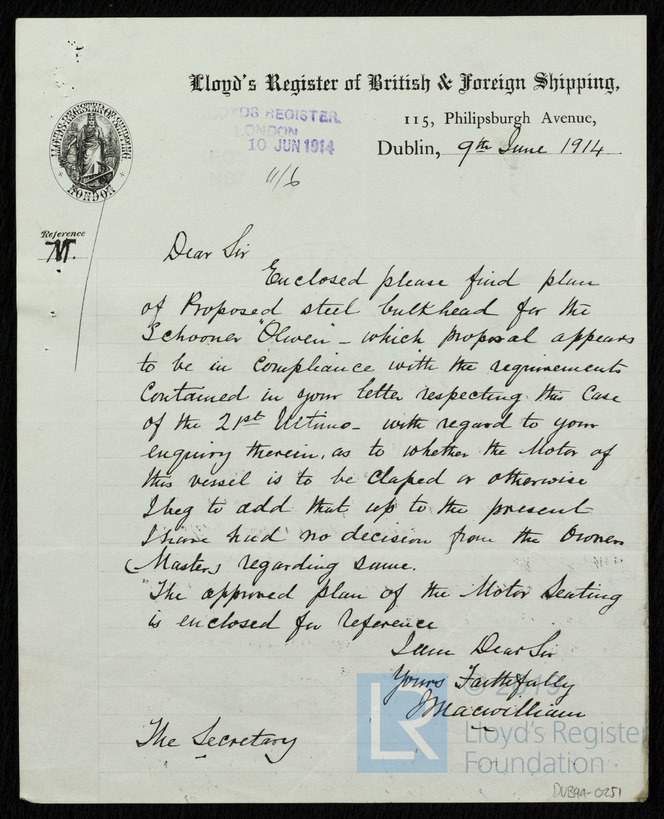 Lloyd's Register of British & Foreign Shipping,
115, Philipsburgh Avenue,
Dublin, 9th June 1914
LLOYDS REGISTER
LONDON
10 JUN 1914
11/6
LLOYD'S REGISTER OF SHIPPING
LONDON
Reference
M.
Dear Sir
Enclosed please find plan
of Proposed steel bulkhead for the
Schooner "Olwen" - which proposal appears
to be in compliance with the requirements
contained in your letter respecting this case
of the 21st Ultimo - with regard to your
enquiry therein, as to whether the Motor of
this vessel is to be claped or otherwise
I beg to add that up to the present
I have had no decision from the Owner
(Master) regarding same.
The approved plan of the Motor Seating
is enclosed for reference
I am Dear Sir
Yours Faithfully
J Macwilliam
The Secretary
LR
Lloyd's Register
Foundation
DUB9A-0251